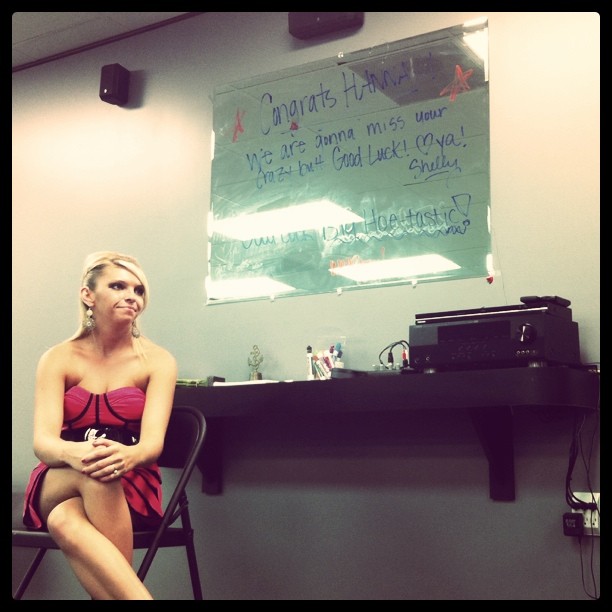 Congrats HANNAH
We are gonna miss your
crazy butt Good Luck! ♡ya!
Shelly
Big Hae-tastic!